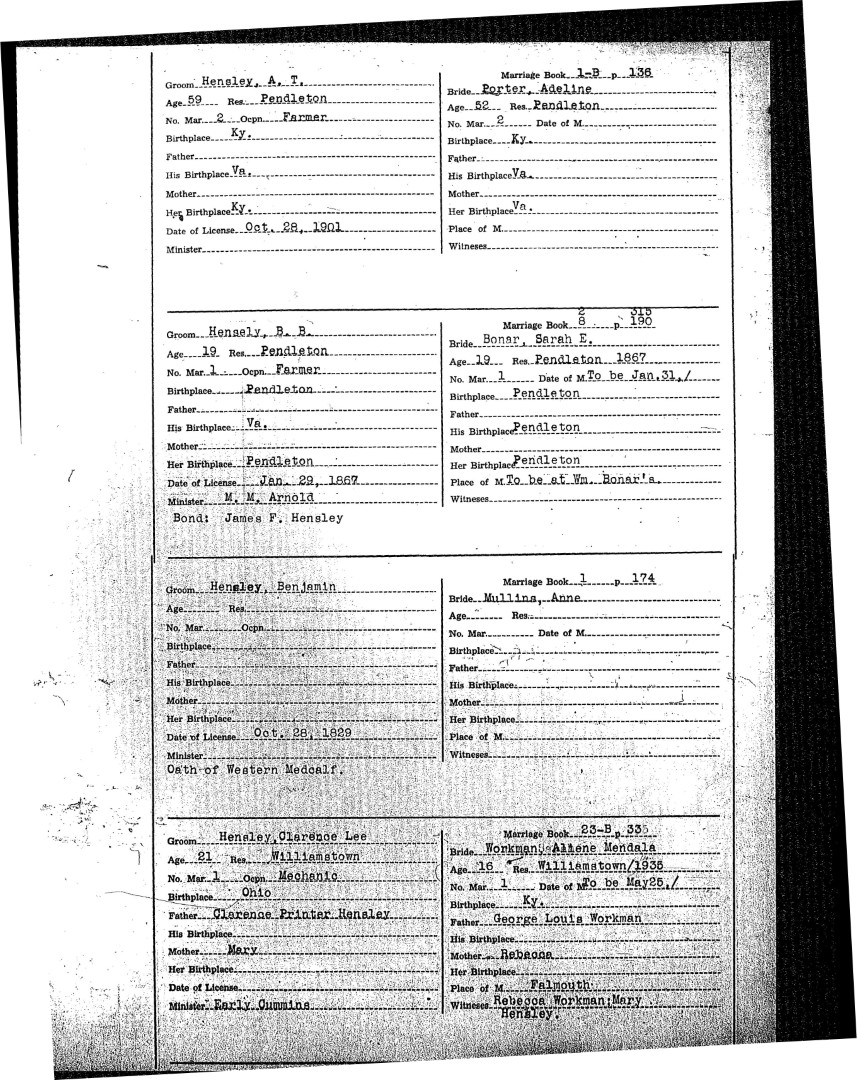 Groom Hensley, A. T.
Age 59 Res. Pendleton
No. Mar. 2 Ocpn. Farmer
Birthplace Ky.
Father
His Birthplace Va.
Mother
Her Birthplace Ky.
Date of License Oct. 28, 1901
Minister
Marriage Book 1-B p. 136
Bride Porter, Adeline
Age 52 Res. Pendleton
No. Mar. 2 Date of M.
Birthplace Ky.
Father
His Birthplace Va.
Mother
Her Birthplace Va.
Place of M.
Witneses
Groom Hensely, B. B.
Age 19 Res. Pendleton
No. Mar. 1 Ocpn. Farmer
Birthplace Pendleton
Father
His Birthplace Va.
Mother
Her Birthplace Pendleton
Date of License Jan. 29, 1867
Minister M. M. Arnold
Bond: James F. Hensley
2 315
Marriage Book 8 p. 190
Bride Bonar, Sarah E.
Age 19 Res. Pendleton 1867
No. Mar. 1 Date of M. To be Jan.31,/
Birthplace Pendleton
Father
His Birthplace Pendleton
Mother
Her Birthplace Pendleton
Place of M. To be at Wm. Bonar's.
Witneses
Groom Hensley, Benjamin
Age Res.
No. Mar. Ocpn.
Birthplace
Father
His Birthplace
Mother
Her Birthplace
Date of License Oct. 28, 1829
Minister
Oath of Western Medcalf.
Marriage Book 1 p. 174
Bride Mullins, Anne
Age Res.
No. Mar. Date of M.
Birthplace
Father
His Birthplace
Mother
Her Birthplace
Place of M.
Witneses
Groom Hensley,Clarence Lee
Age 21 Res. Williamstown
No. Mar. 1 Ocpn. Mechanic
Birthplace Ohio
Father Clarence Printer Hensley
His Birthplace
Mother Mary
Her Birthplace
Date of License
Minister Early Cummins
Marriage Book 23-B p. 335
Bride Workman, Mendala
Age 16 Res. Williamstown/1935
No. Mar. 1 Date of M. To be May25,/
Birthplace Ky.
Father George Louis Workman
His Birthplace
Mother Rebecca
Her Birthplace
Place of M. Falmouth
Witneses Rebecca Workman;Mary
Hensley.